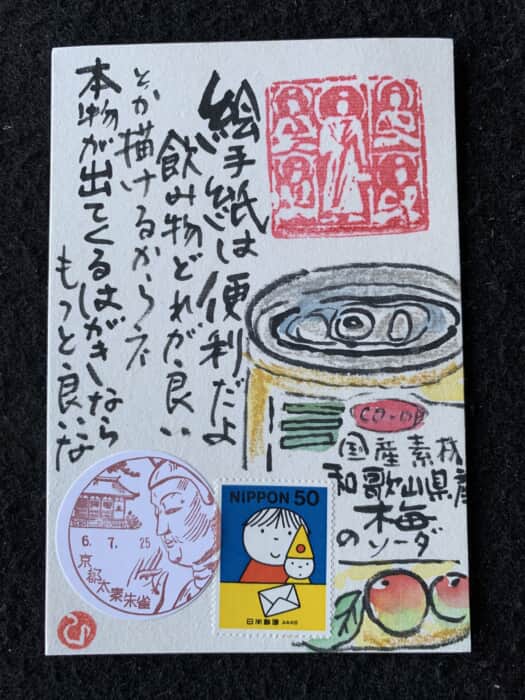 絵手紙は便利だよ
飲み物どれが良い
とか描けるからネ
本物が出てくるはがきなら
もっと良いな
CO-OP
国産素材
和歌山県産
梅
のソーダ
6. 7. 25
京都太秦朱雀
NIPPON 50
日本郵便
ひ